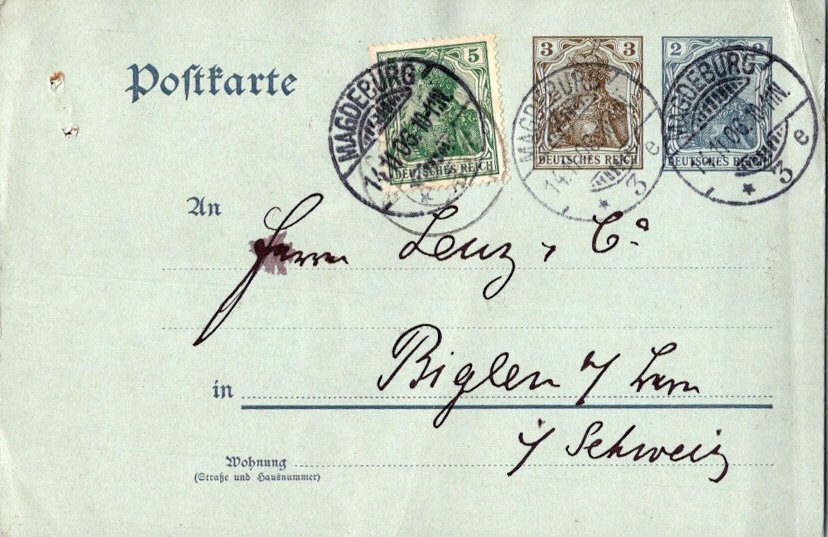 Postkarte
5
DEUTSCHES REICH
3 3
DEUTSCHES REICH
2 2
DEUTSCHES REICH
MAGDEBURG
14.11.06.10-11N.
MAGDEBURG
14.
* 3 e
MAGDEBURG
11.06.10-11N.
* 3 e
An
Herrn Lenz & Co
in Biglen b/ Bern
i/ Schweiz
Wohnung
(Straße und Hausnummer)